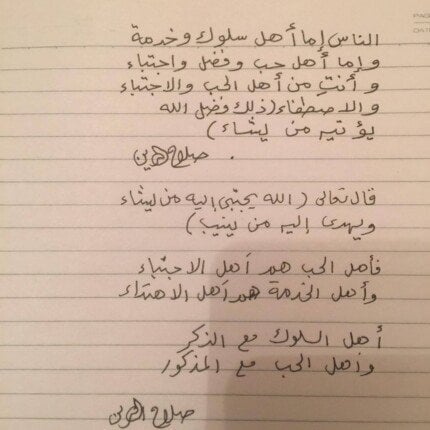 الناس إما أهل سلوك وخدمة
وإما أهل حب وفضل واجتباء
وأنت من أهل الحب والاجتباء
والاصطفاء (ذلك فضل الله
يؤتيه من يشاء)
صلاح الدين
قال تعالى (الله يجتبي إليه من يشاء
ويهدى إليه من ينيب)
فأهل الحب هم أهل الاجتباء
وأهل الخدمة هم أهل الاهتداء
أهل السلوك مع الذكر
وأهل الحب مع المذكور
صلاح الدين
PAG
DATE